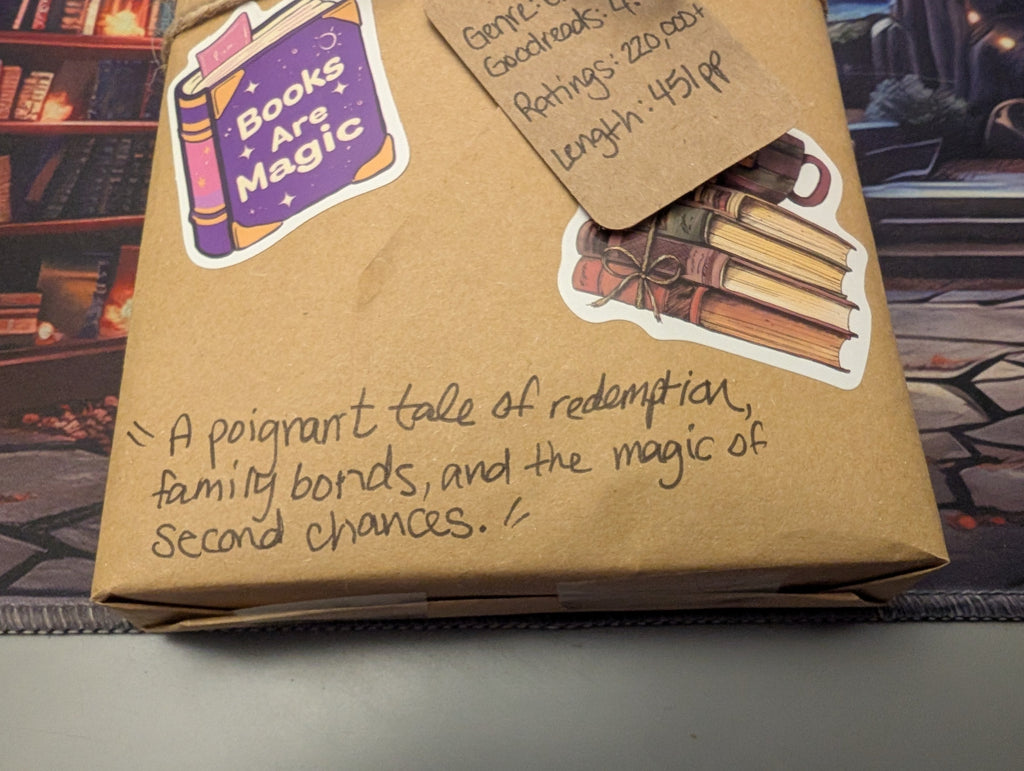 Books
Are
Magic
Genre:
Goodreads: 4.
Ratings: 220,000+
Length: 451 pp
"A poignant tale of redemption,
family bonds, and the magic of
second chances."